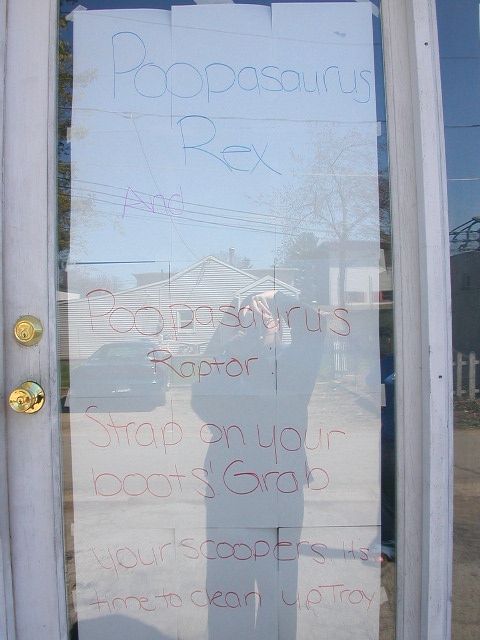 Poopasaurus
Rex
And
Poopasaurus
Raptor
Strap on your
boots! Grab
your scoopers. Its
time to clean up Troy